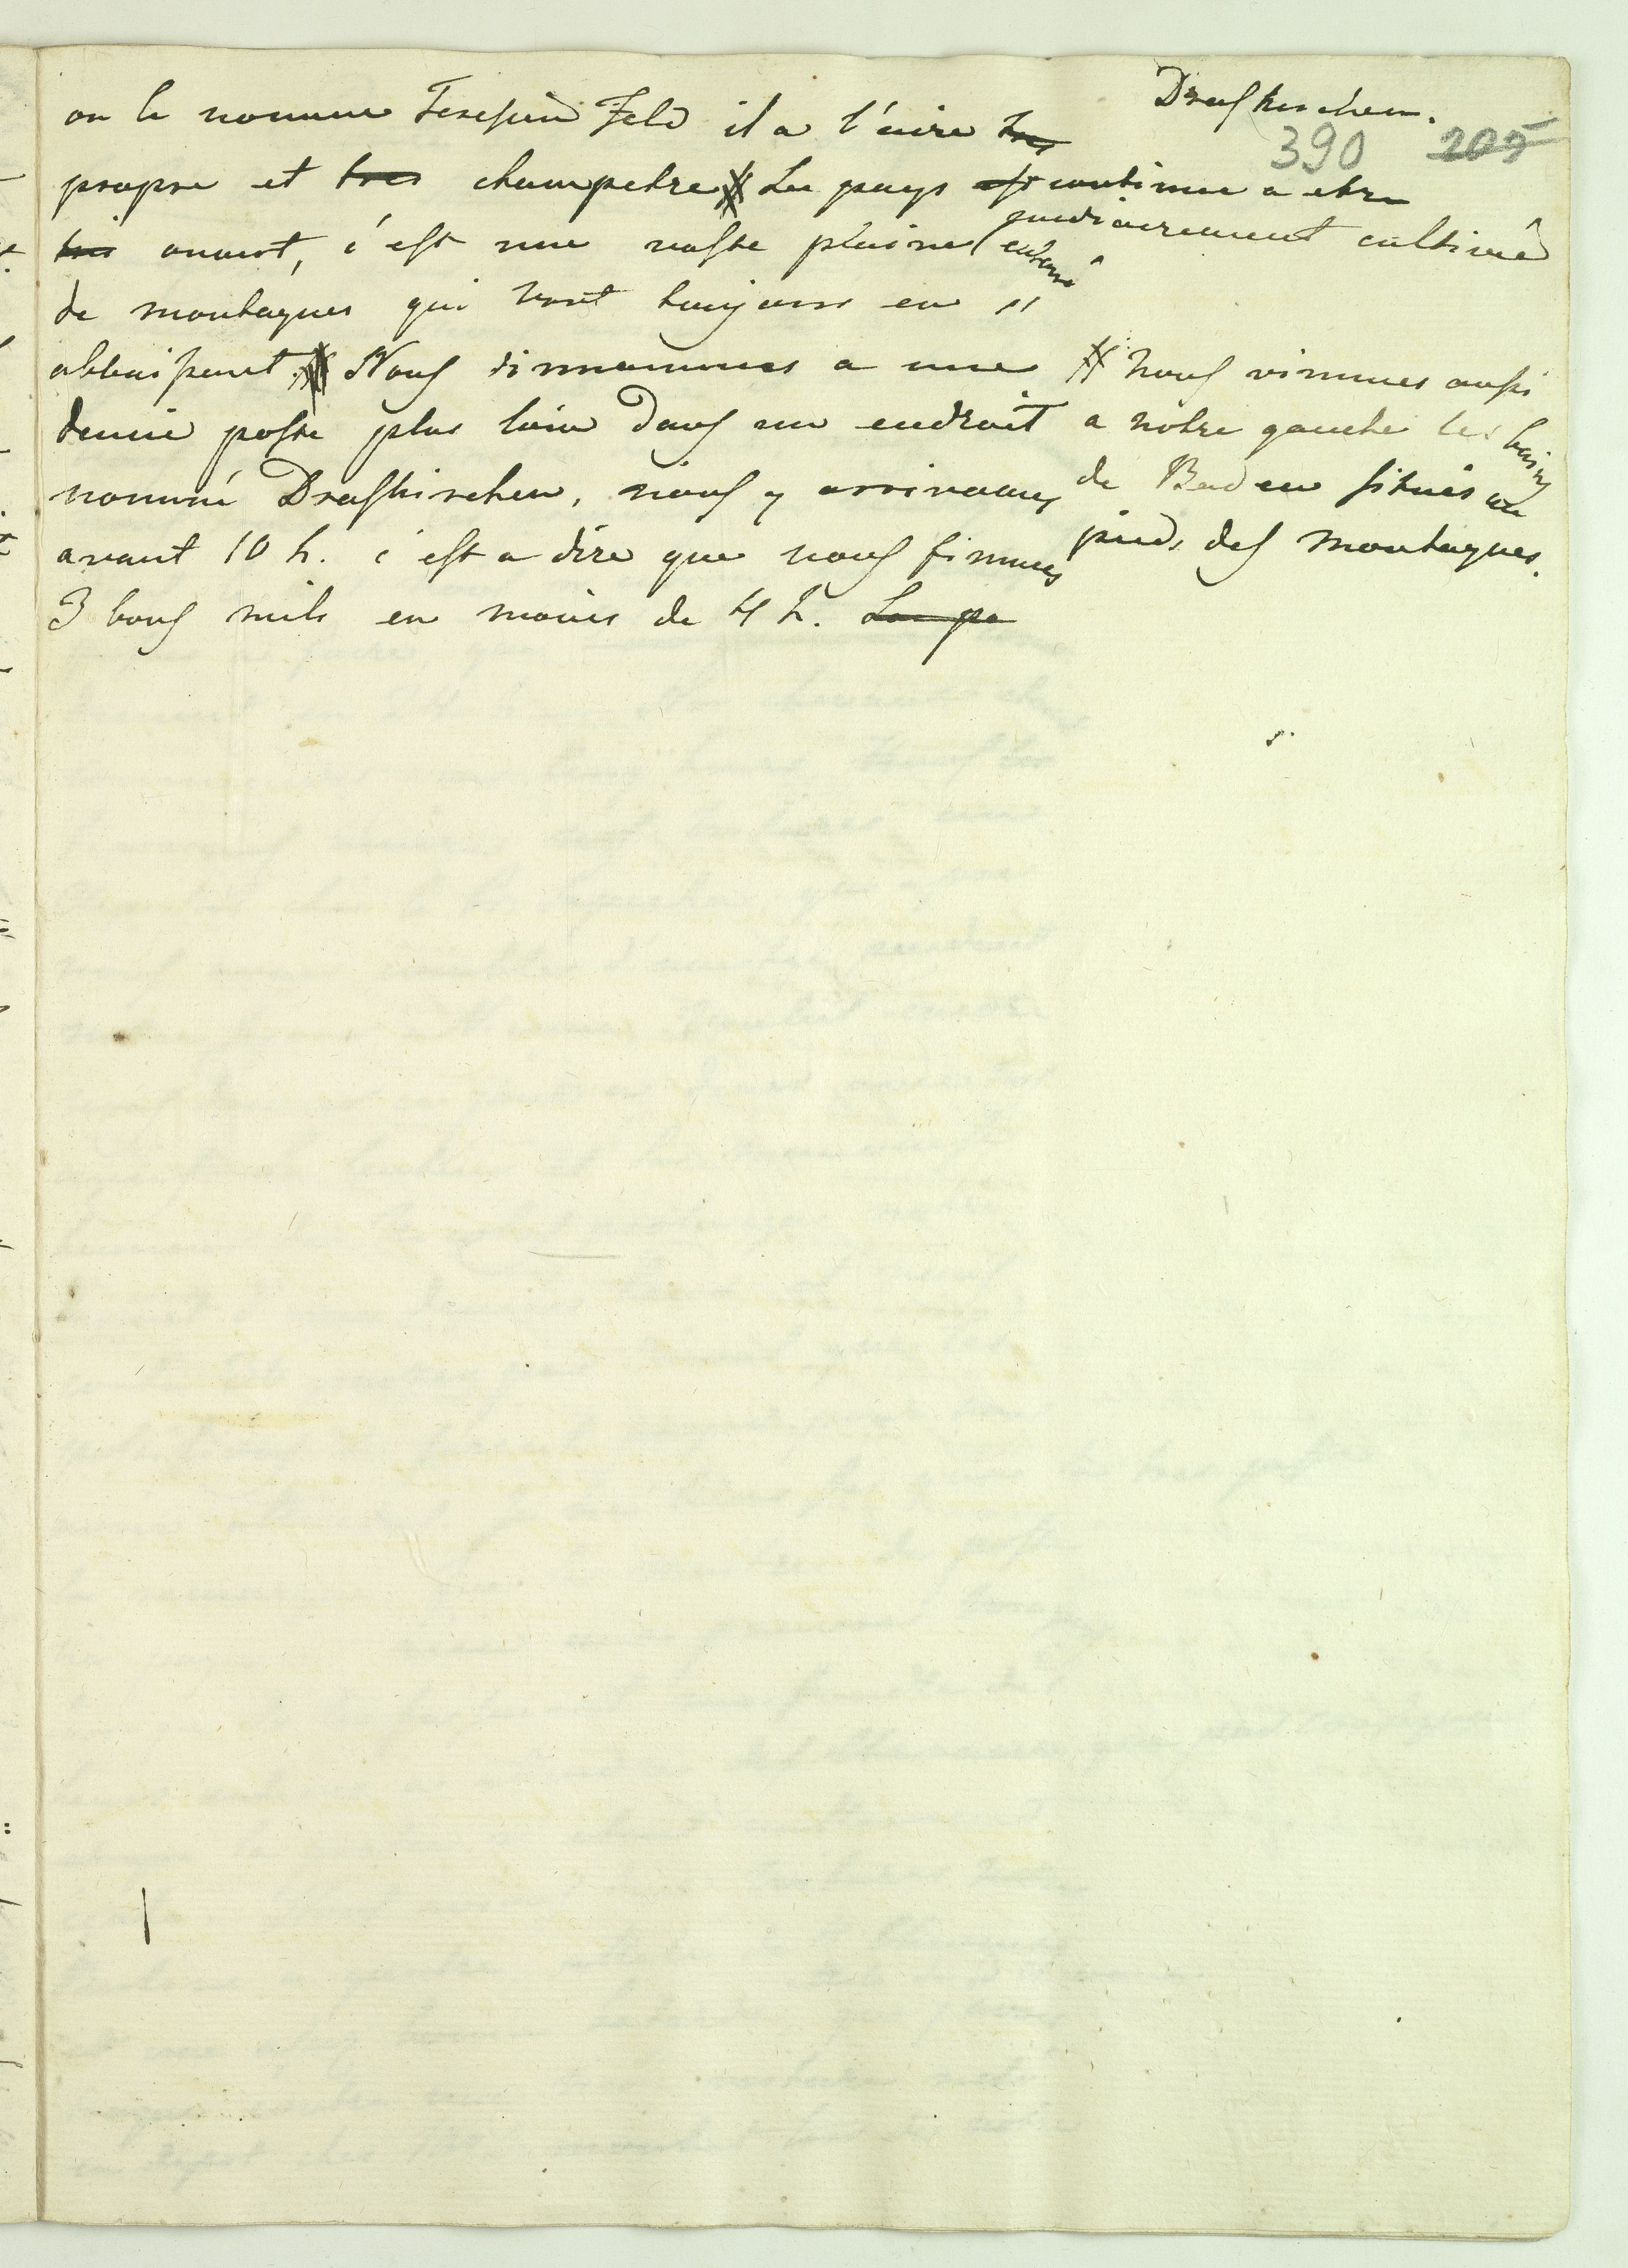 Drasskirchen.
390 205
on le nomme Feresien Feld il a l'aire tres
propre et tres champetre # Le pays est continue a etre
tres ouvert, c'est une vaste plaine (entouré
mediocrement cultivé
de montagnes qui vont toujours en "
abbaissant. # Nous dinnammes a une
demie poste plus loin dans un endroit
nommé Drasskirchen, nous y arrivames
avant 10 h. c'est a dire que nous fimmes
3 bons mils en moins de 4 h. Le pa
# nous vimmes aussi
a nôtre gauche les bains
de Baden situés au
pieds des montagnes.